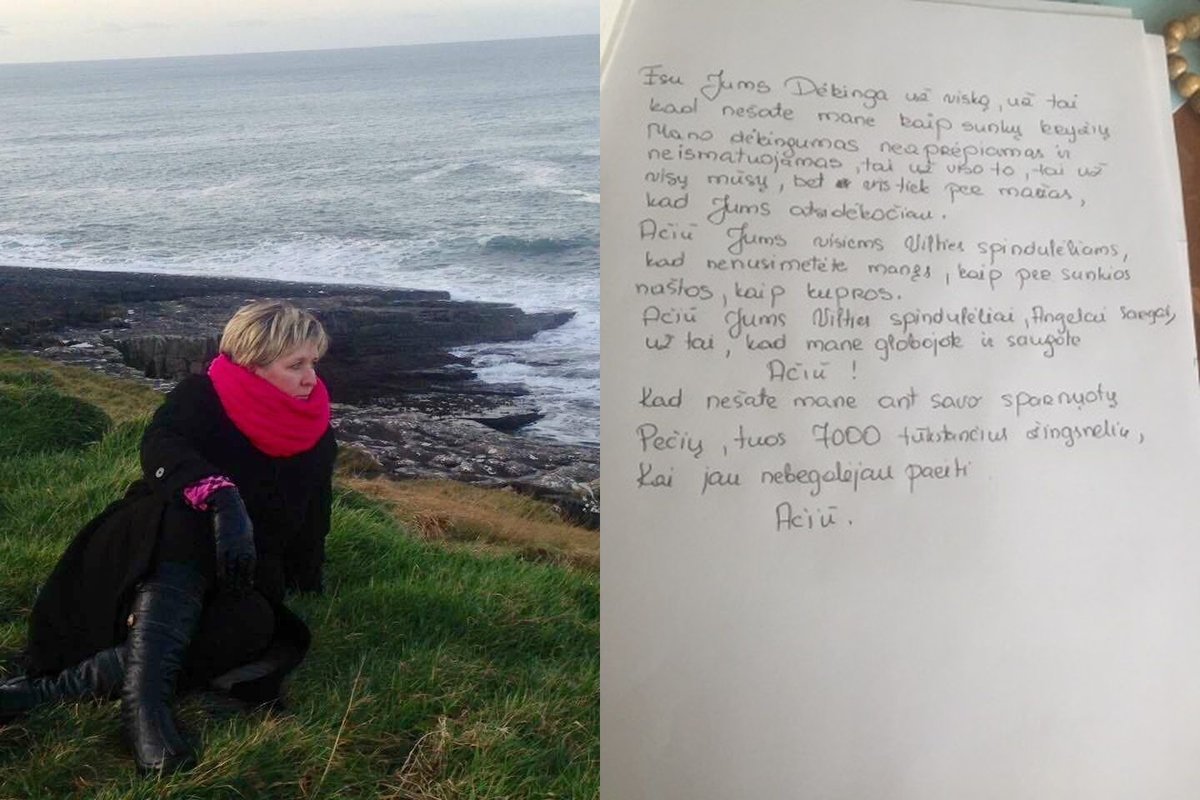 Esu Jums Dėkinga už viską, už tai
kad nešate mane kaip sunkų kryžių
Mano dėkingumas neaprėpiamas ir
neišmatuojamas, tai už viso to, tai už
visų mūsų, bet vis tiek per mažas,
kad Jums atsidėkočiau.
Ačiū Jums visiems Vilties spindulėliams,
kad nenusimetėte manęs, kaip per sunkios
naštos, kaip kupros.
Ačiū Jums Vilties spindulėliai, Angelai Sargai,
už tai, kad mane globojote ir saugote
Ačiū !
Kad nešate mane ant savo sparnuotų
Pečių, tuos 7000 tūkstančius žingsnelių,
Kai jau nebegalėjau paeiti
Ačiū.